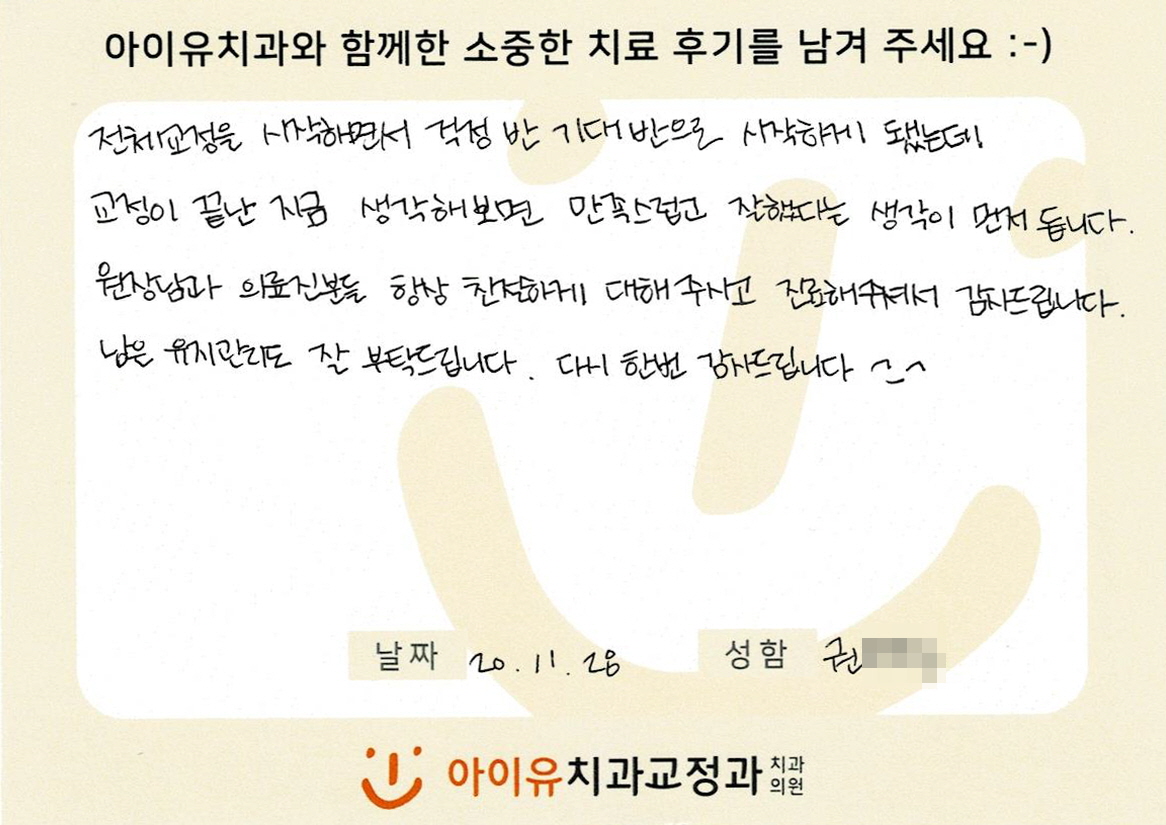 아이유치과와 함께한 소중한 치료 후기를 남겨 주세요 :-)
전체교정을 시작하면서 걱정 반 기대 반으로 시작하게 됐는데
교정이 끝난 지금 생각해보면 만족스럽고 잘했다는 생각이 먼저 듭니다.
원장님과 의료진분들 항상 친절하게 대해주시고 진료해주셔서 감사드립니다.
남은 유지관리도 잘 부탁드립니다. 다시 한번 감사드립니다 ^_^
날짜 20.11.28 성함 권
아이유치과교정과 치과
의원